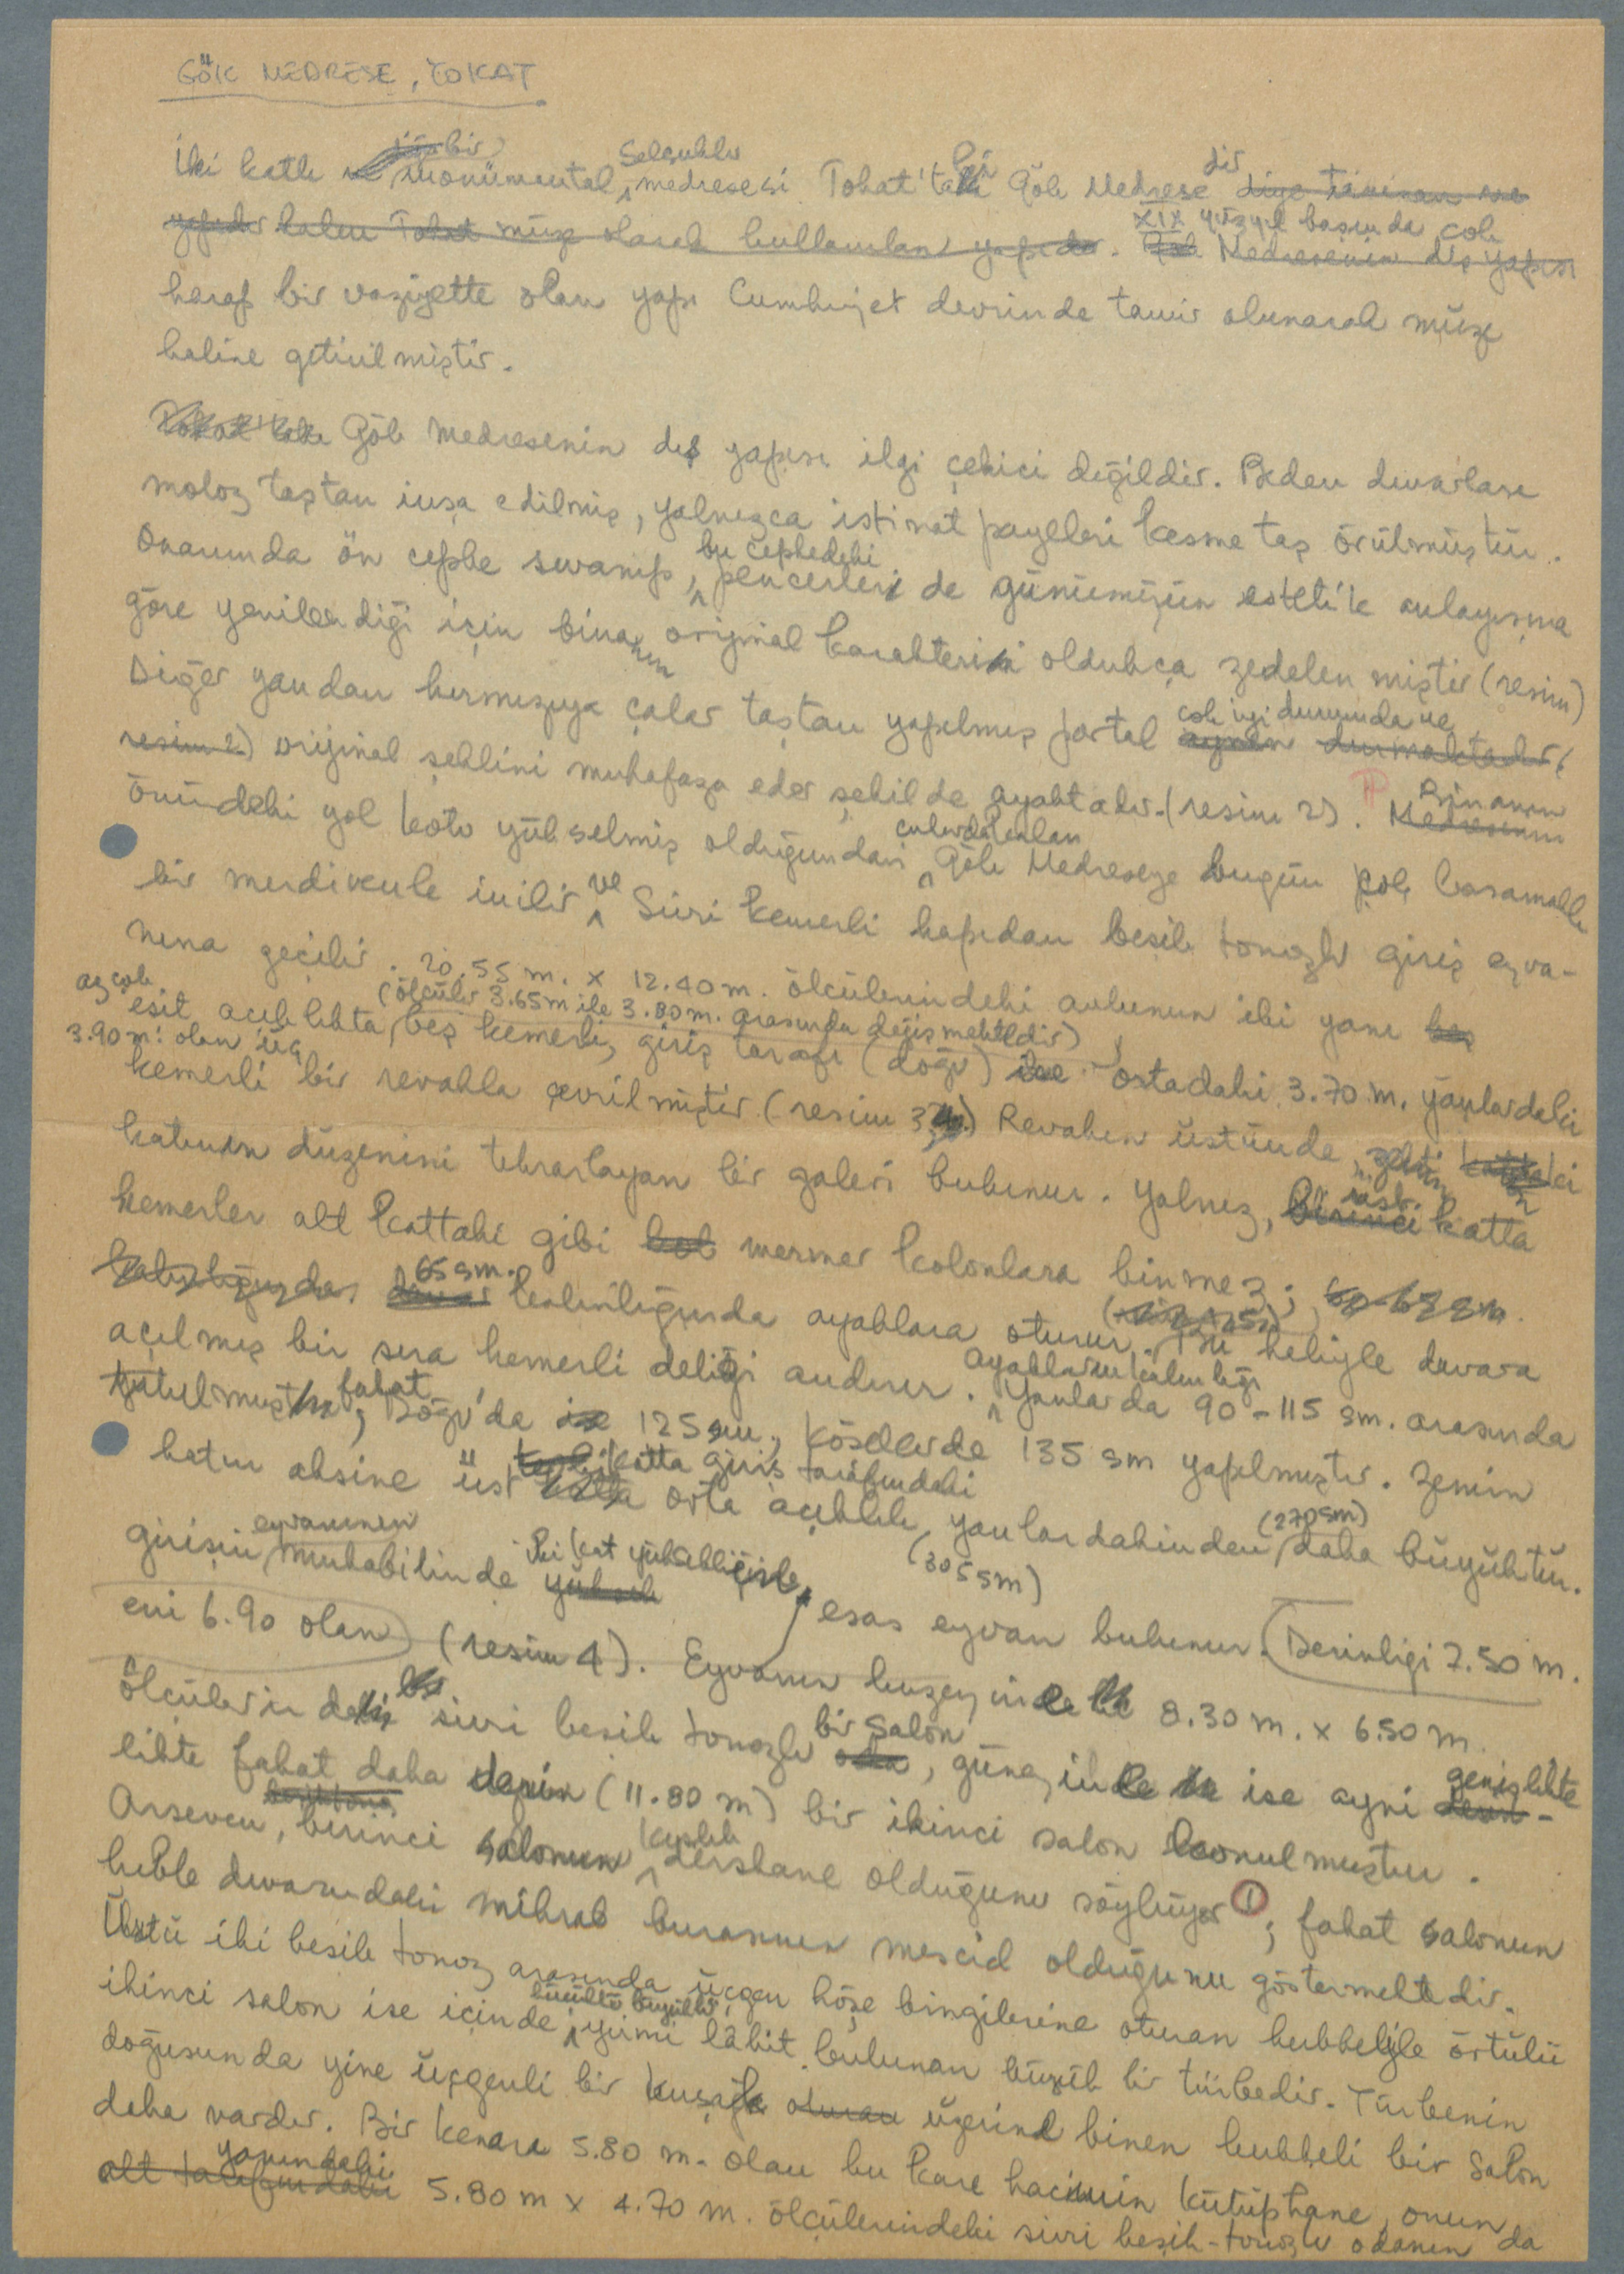 GÖK MEDRESE, TOKAT
İki katlı bir monümental Selçuklu medresesi Tokat'taki Gök Medrese dir diye tanınan ve
yapıdır halen Tokat müze olarak kullanılan yapıdır. Gök Medresenin dış yapısı XIX yüzyıl başında çok
harap bir vaziyette olan yapı Cumhuriyet devrinde tamir olunarak müze
haline getirilmiştir.
Tokat'taki Gök Medresenin dış yapısı ilgi çekici değildir. Beden duvarları
moloz taştan inşa edilmiş, yalnızca istinat payeleri kesme taş örülmüştür.
Onarımda ön cephe sıvanıp, bu cephedeki pencereleri de günümüzün estetik anlayışına
göre yenilendiği için binanın orijinal karakteri oldukça zedelenmiştir (resim)
Diğer yandan kırmızıya çalar taştan yapılmış portal aynen durmaktadır( çok iyi durumda ve
resim 2) orijinal şeklini muhafaza eder şekilde ayaktadır. (resim 2). Medresenin Binanın
önündeki yol kotu yükselmiş olduğundan çukurda kalan Gök Medreseye bugün çok basamaklı
bir merdivenle inilir ve Sivri kemerli kapıdan beşik tonozlu giriş eyva-
nına geçilir. 20.55 m. x 12.40 m. ölçülerindeki avlunun iki yanı beş
az çok eşit açıklıkta (ölçüler 3.65m ile 3.80m. arasında değişmektedir) beş kemerli, giriş tarafı (doğu) ise ortadaki 3.70 m. yanlardaki
3.90 m. olan üç kemerli bir revakla çevrilmiştir (resim 3) Revakın üstünde zemin
katının düzenini tekrarlayan bir galeri bulunur. Yalnız, birinci üst katta
kemerler alt kattaki gibi mermer kolonlara binmez;
kalınlığında. duvar 65 sm. kalınlığında ayaklara oturur. Bu haliyle duvara
açılmış bir sıra kemerli deliği andırır. Ayakların kalınlığı Yanlarda 90-115 sm. arasında
tutulmuştur, fakat Doğu'da ise 125 sm., köşelerde 135 sm yapılmıştır. Zemin
katın aksine üst katta giriş tarafındaki orta açıklık (305 sm) yanlardakinden (270 sm) daha büyüktür.
girişin eyvanının mukabilinde yüksek iki kat yüksekliğinde, esas eyvan bulunur. Derinligi 7.50 m.
eni 6.90 olan (resim 4). Eyvanın kuzeyinde 8.30 m. x 6.50 m.
ölçülerinde sivri beşik tonozlu oda bir salon, güneyinde ise ayni genişlikte
likte fakat daha derin (11.80 m) bir ikinci salon konulmuştur.
Arseven, birinci salonun kışlık dershane olduğunu söylüyor ①; fakat salonun
kıble duvarındaki mihrab buranın mescid olduğunu göstermektedir.
Üstü iki beşik tonoz arasında üçgen köşe bingilerine oturan kubbeyle örtülü
ikinci salon ise içinde küçüklü büyüklü yirmi lâhit bulunan büyük bir türbedir. Türbenin
doğusunda yine üçgenli bir kuşağa oturan üzerine binen kubbeli bir salon
daha vardır. Bir kenarı 5.80 m. olan bu kare hacimin kütüphane, onun
alt tarafındaki yanındaki 5.80 m x 4.70 m. ölçülerindeki sivri beşik-tonozlu odanın da